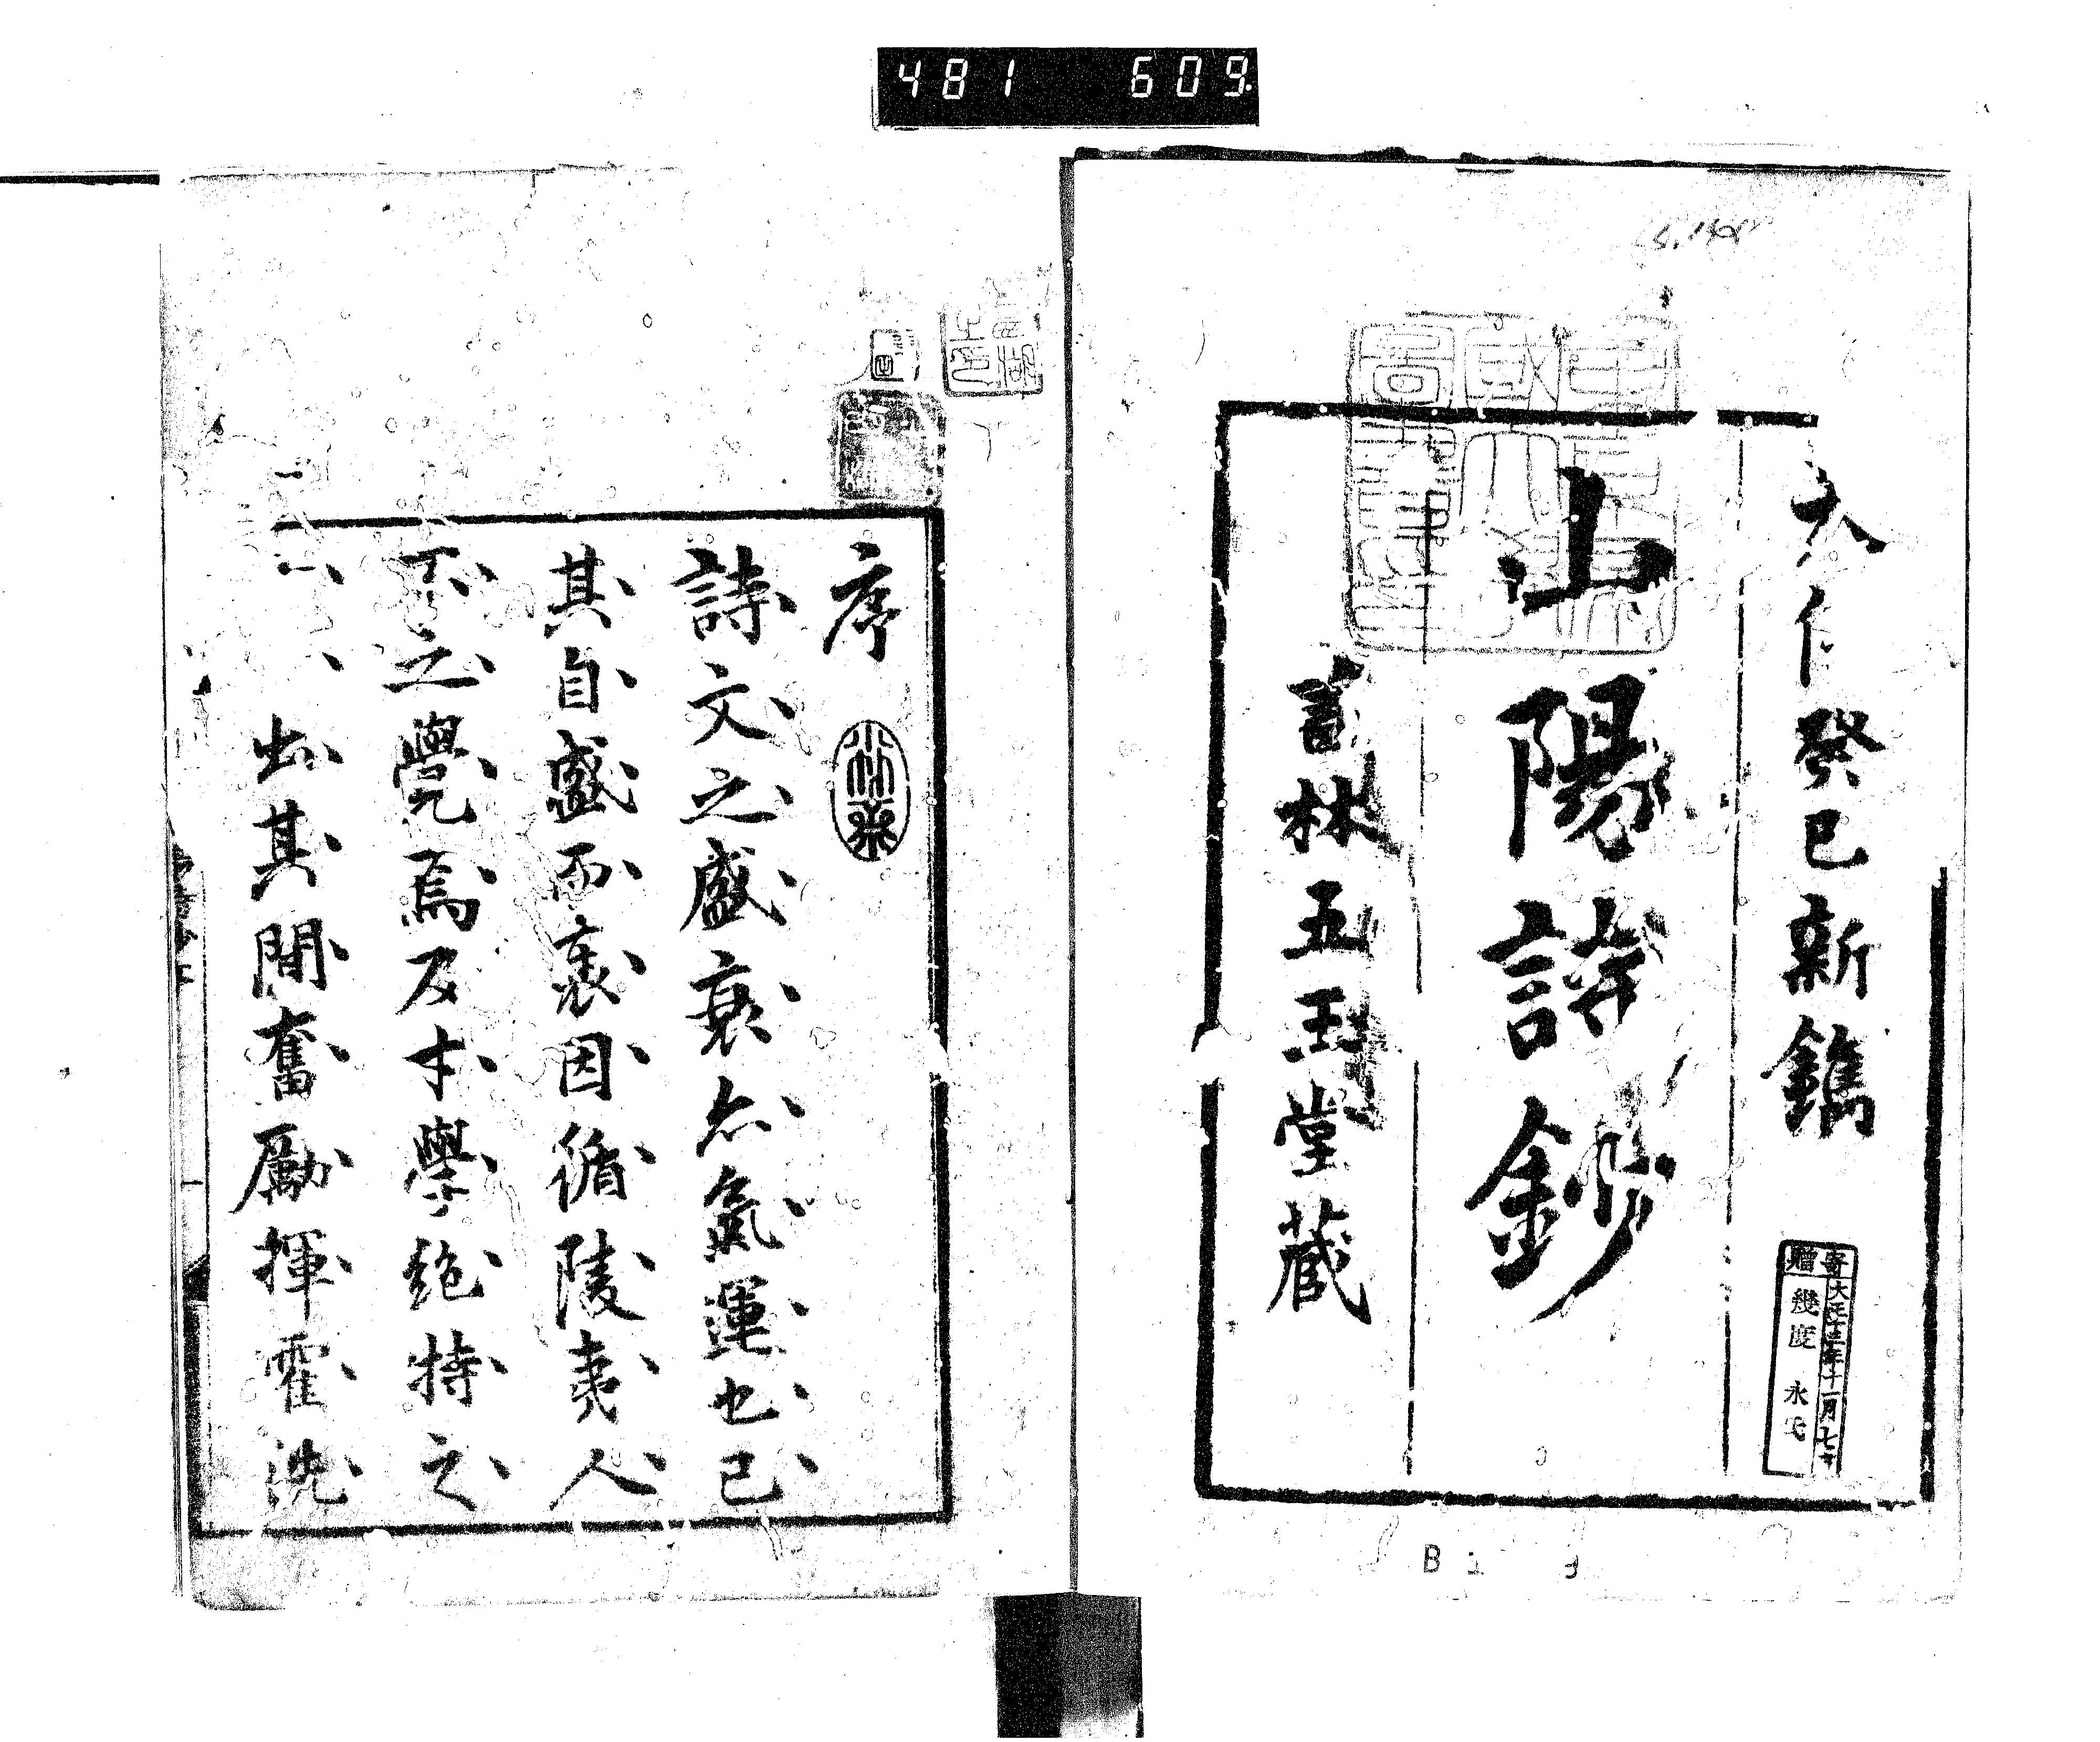 481 609
癸巳新鐫
山陽詩鈔
書林五玉堂藏
寄贈
大正十三年十一月七
幾度永氏
序
詩文之盛衰亦氣運也已
其自盛而衰因循陵夷人
不之覺焉及才學絶特之
出其間奮勵揮霍洗